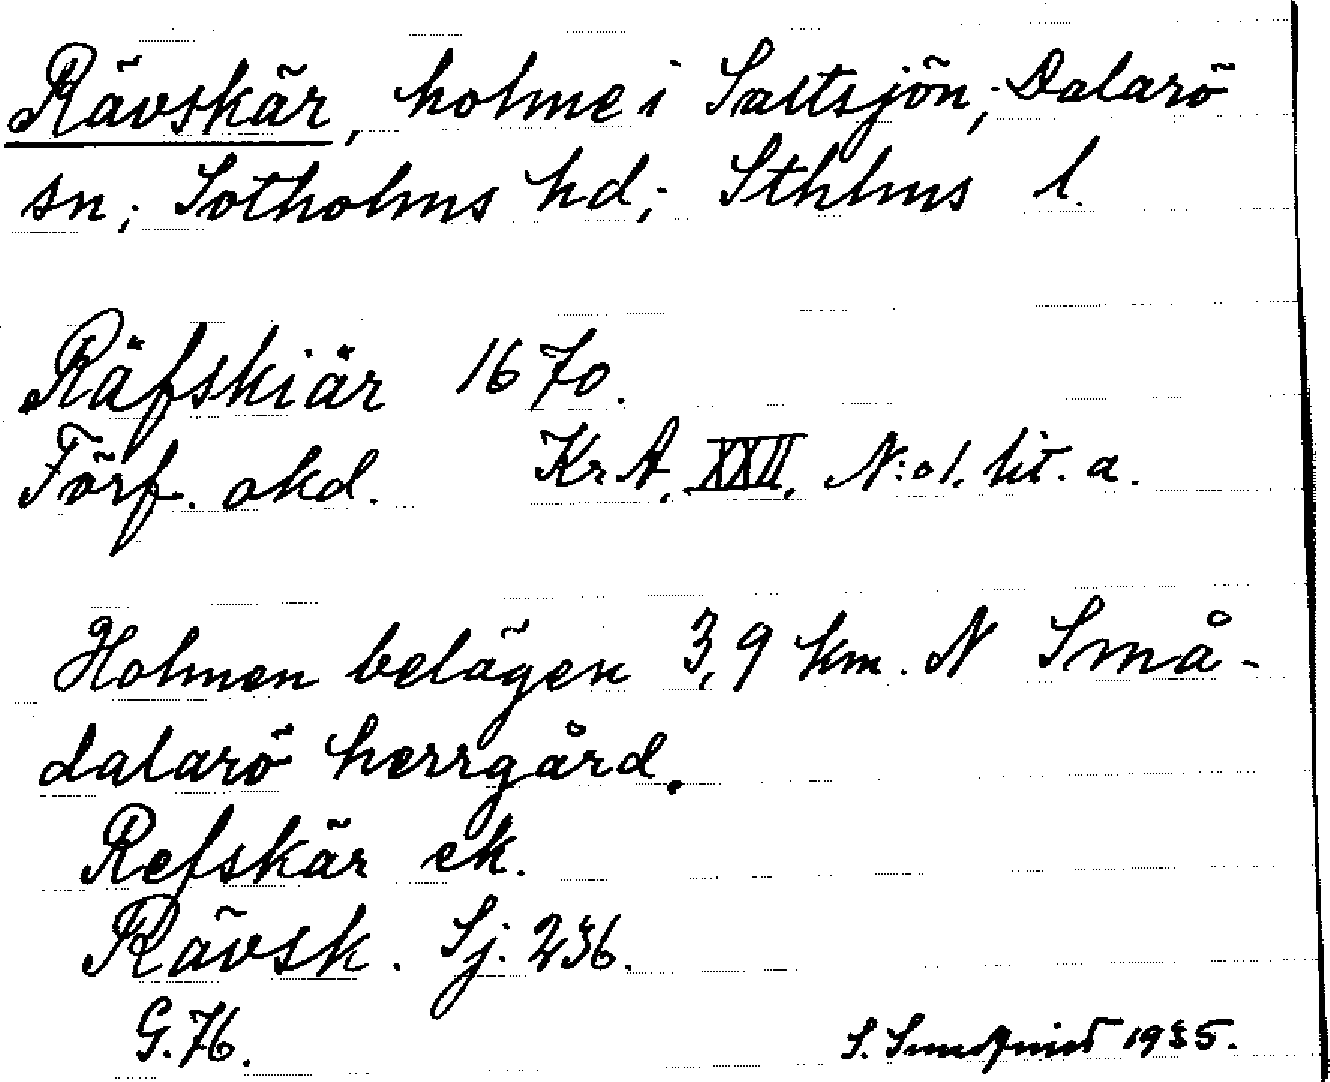 Rävskär, holme i Saltsjön, Dalarö
sn; Sotholms hd; Sthlms l.
Räfskiär 1670.
Förf. okd. Kr.A. XXII. N:o 1. lit. a.
Holmen belägen 3,9 km. N Små-
dalarö herrgård.
Refskär ek.
Rävsk. Sj. 236.
G. 76.
S. 1935.